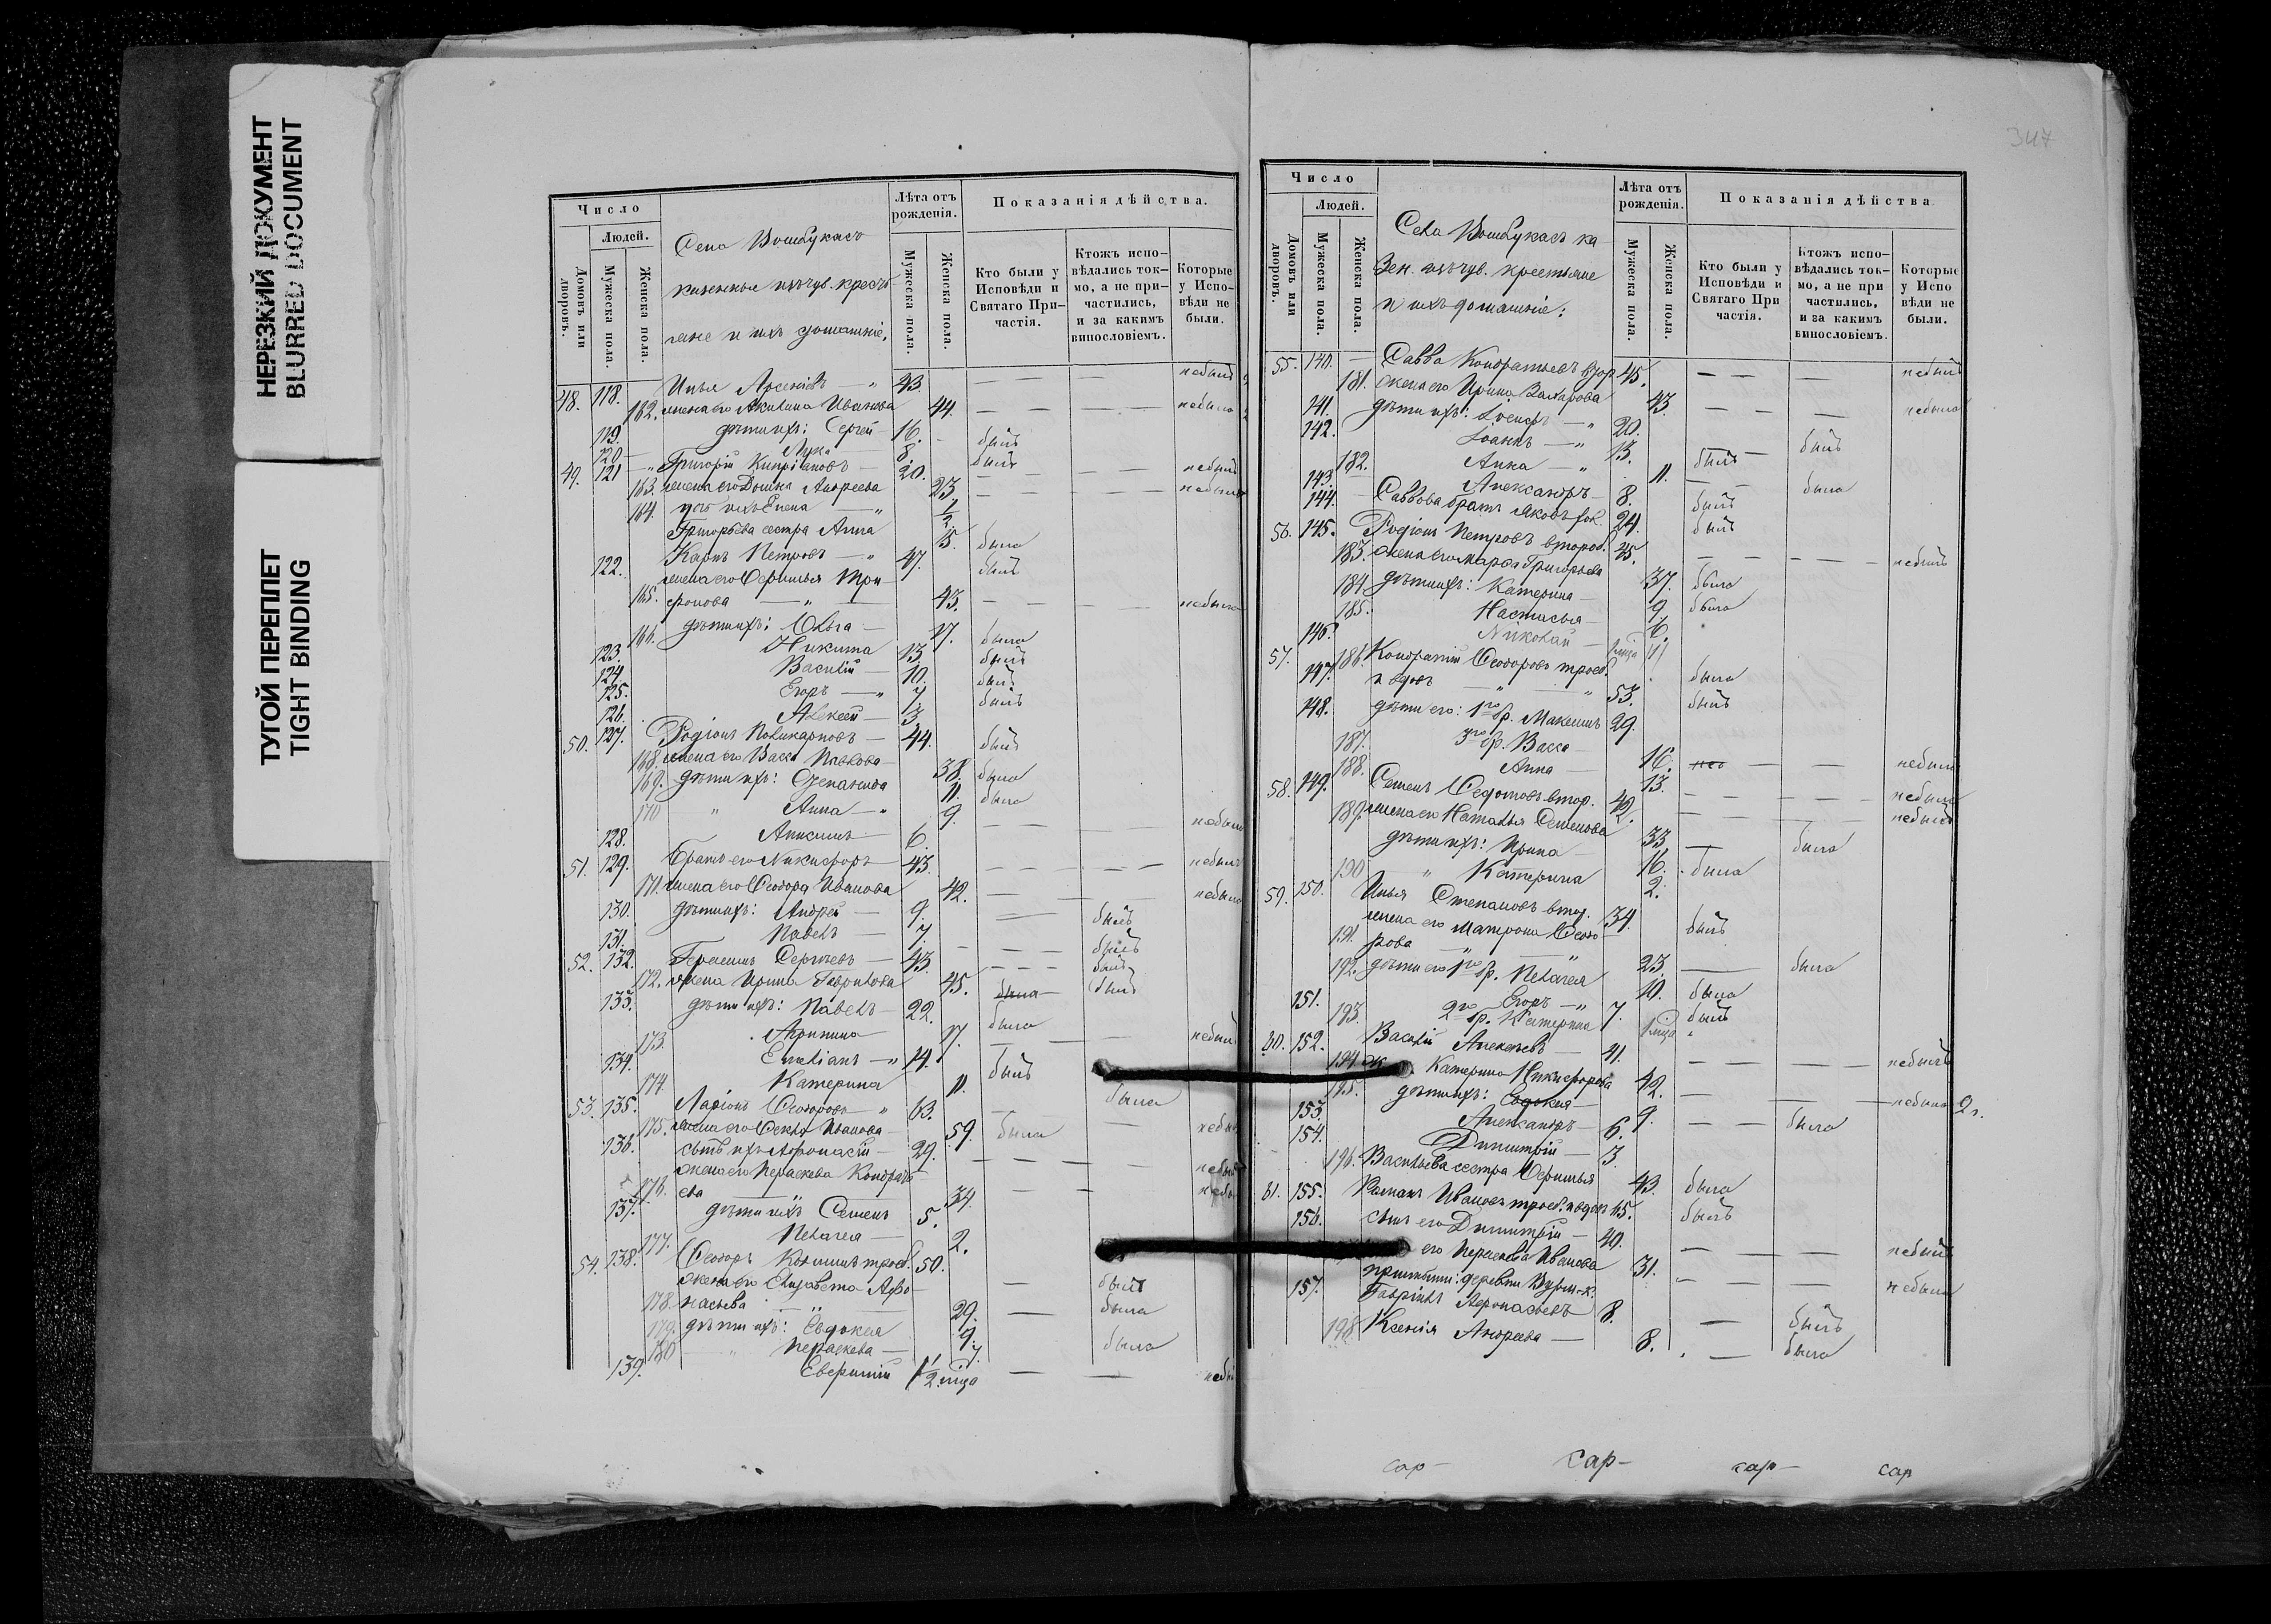 НЕРЕЗКИЙ ДОКУМЕНТ
BLURRED DOCUMENT
ТУГОЙ ПЕРЕПЛЕТ
TIGHT BINDING
Число
Людей.
Домовъ или дворовъ.
Мужеска пола.
Женска пола.
Села
казенные крестьяне и ихъ домашніе,
Лѣта отъ рожденія.
Мужеска пола.
Женска пола.
Показанія дѣйства.
Кто были у Исповѣди и Святаго Причастія.
Ктожъ исповѣдались токмо, а не причастились, и за какимъ винословіемъ.
Которые у Исповѣди не были.
48. 118. Илья 43. — — — небылъ
162. жена его Акилина Иванова 44. — — — небыла
119. дѣти ихъ: Сергей — 16. былъ
120 — Лука — 8. былъ
49. 121 — Григорій Кипріановъ — 20. — — небылъ
163. жена его Домна Андреева 23 — — — небыла
164. дочь ихъ Елена — 1/2
Григорьева сестра Анна 15. была
122. Карпъ Петровъ — 47. былъ
жена его Ѳедосья
165. — 43. — — — небыла
166. дѣти ихъ: Ольга — 17. была
123. Никита 13. былъ
124. Василій — 10. былъ
125. Егоръ — 7 былъ
126. Алексей — 3
50. 127. Родіонъ Поликарповъ — 44. былъ
168. жена его Васса Павлова — 38. была
169. дѣти ихъ: Степанида 11. была
170 Анна — 9. — — — небыла
128. Анисимъ — 6.
51. 129. братъ его Никифоръ — 43. — — — небылъ
171. жена его Ѳеодора Иванова 42. — — небыла
130. дѣти ихъ: Андрей — 9. — былъ
131. Павелъ — 7. — былъ
52. 132. Герасимъ Сергѣевъ — 43. — — — былъ
172. жена Ирина Гаврилова 45. была
133. дѣти ихъ: Павелъ — 22. была
173. 17. — — небыла
134. Емеліанъ — 14. былъ
174 Катерина 11. — была
53. 135. Ларіонъ Ѳеодоровъ — 63.
175. жена его Ѳекла Иванова — 59. была —
136. сынъ ихъ Афонасій — 29. — — —
жена его Пераскева Кондрать-
176. ева — 34. — —
137. дѣти ихъ Семенъ 5.
177. Пелагея — 2.
54. 138. Ѳеодоръ Козминъ 50. — былъ
жена его Елизавета Афо-
178. насьева — 29. — была
179. дѣти ихъ: Евдокея 9. была
180 — Пераскева — 7.
139. 1/2 года — —
347
Число
Людей.
Домовъ или дворовъ.
Мужеска пола.
Женска пола.
Села ка-
зен. крестьяне
и ихъ домашніе:
Лѣта отъ рожденія.
Мужеска пола.
Женска пола.
Показанія дѣйства
Кто были у Исповѣди и Святаго При частія.
Ктожъ исповѣдались ток-мо, а не при частились, и за какимъ винословіемъ.
Которые у Испо вѣди не были.
55. 140. — Савва Кондратьевъ 45. — — — небылъ
181. жена его Ирина Захарова 43. — — — небыла
141. дѣти ихъ: — 20. былъ
142. Іоаннъ — 13. былъ
182. Анна — 11. была
143. Александръ — 8. былъ
144. Саввова братъ Яковъ 24. былъ
56. 145. Родіонъ Петровъ 45. — — — — небылъ
183. жена его Марфа Григорьева 37. была
184 дѣти ихъ: Катерина — 9. была
185. Настасья — 6.
146. Николай —
57. 186. Кондратій Ѳеодоровъ была
147. и вдовъ — 53. былъ
148. дѣти его: 1го бр. Максимъ 29.
187. 3го бр. Васса — 16. — — небыла
188. Анна — 13. — — — небыла
58. 149. Семенъ Ѳедотовъ 42. — — — небылъ
189. жена его Наталья Семенова 33 — была
дѣти ихъ: Ирина — 16. была
190 Катерина 2.
59. 150. Илья Степановъ 34. былъ
жена его Матрона Ѳеодо-
191. рова — 23. — была
192. дѣти его 1го бр. Пелагея 10. была
151. Егоръ — 7. былъ
193. 2го бр. Катерина
60. 152. Василій Алексѣевъ — 41. — — — небылъ
194 ж Катерина Никифорова 42. — — — небыла 2г.
195. дѣти ихъ: Евдокея — 9. — — была
153. Александръ — 6.
154. Димитрій — 3.
196. Васильева сестра 43. была
61. 155. Романъ Ивановъ 65. былъ
156. сынъ его Димитрій — 40. — — — небылъ
его Пераскева Иванова 31. — — — небыла
деревни
157. Гаврілъ Афонасьевъ 8. — былъ
198 Ксенія Андреева — 8. — была
сар- сар- сар- сар